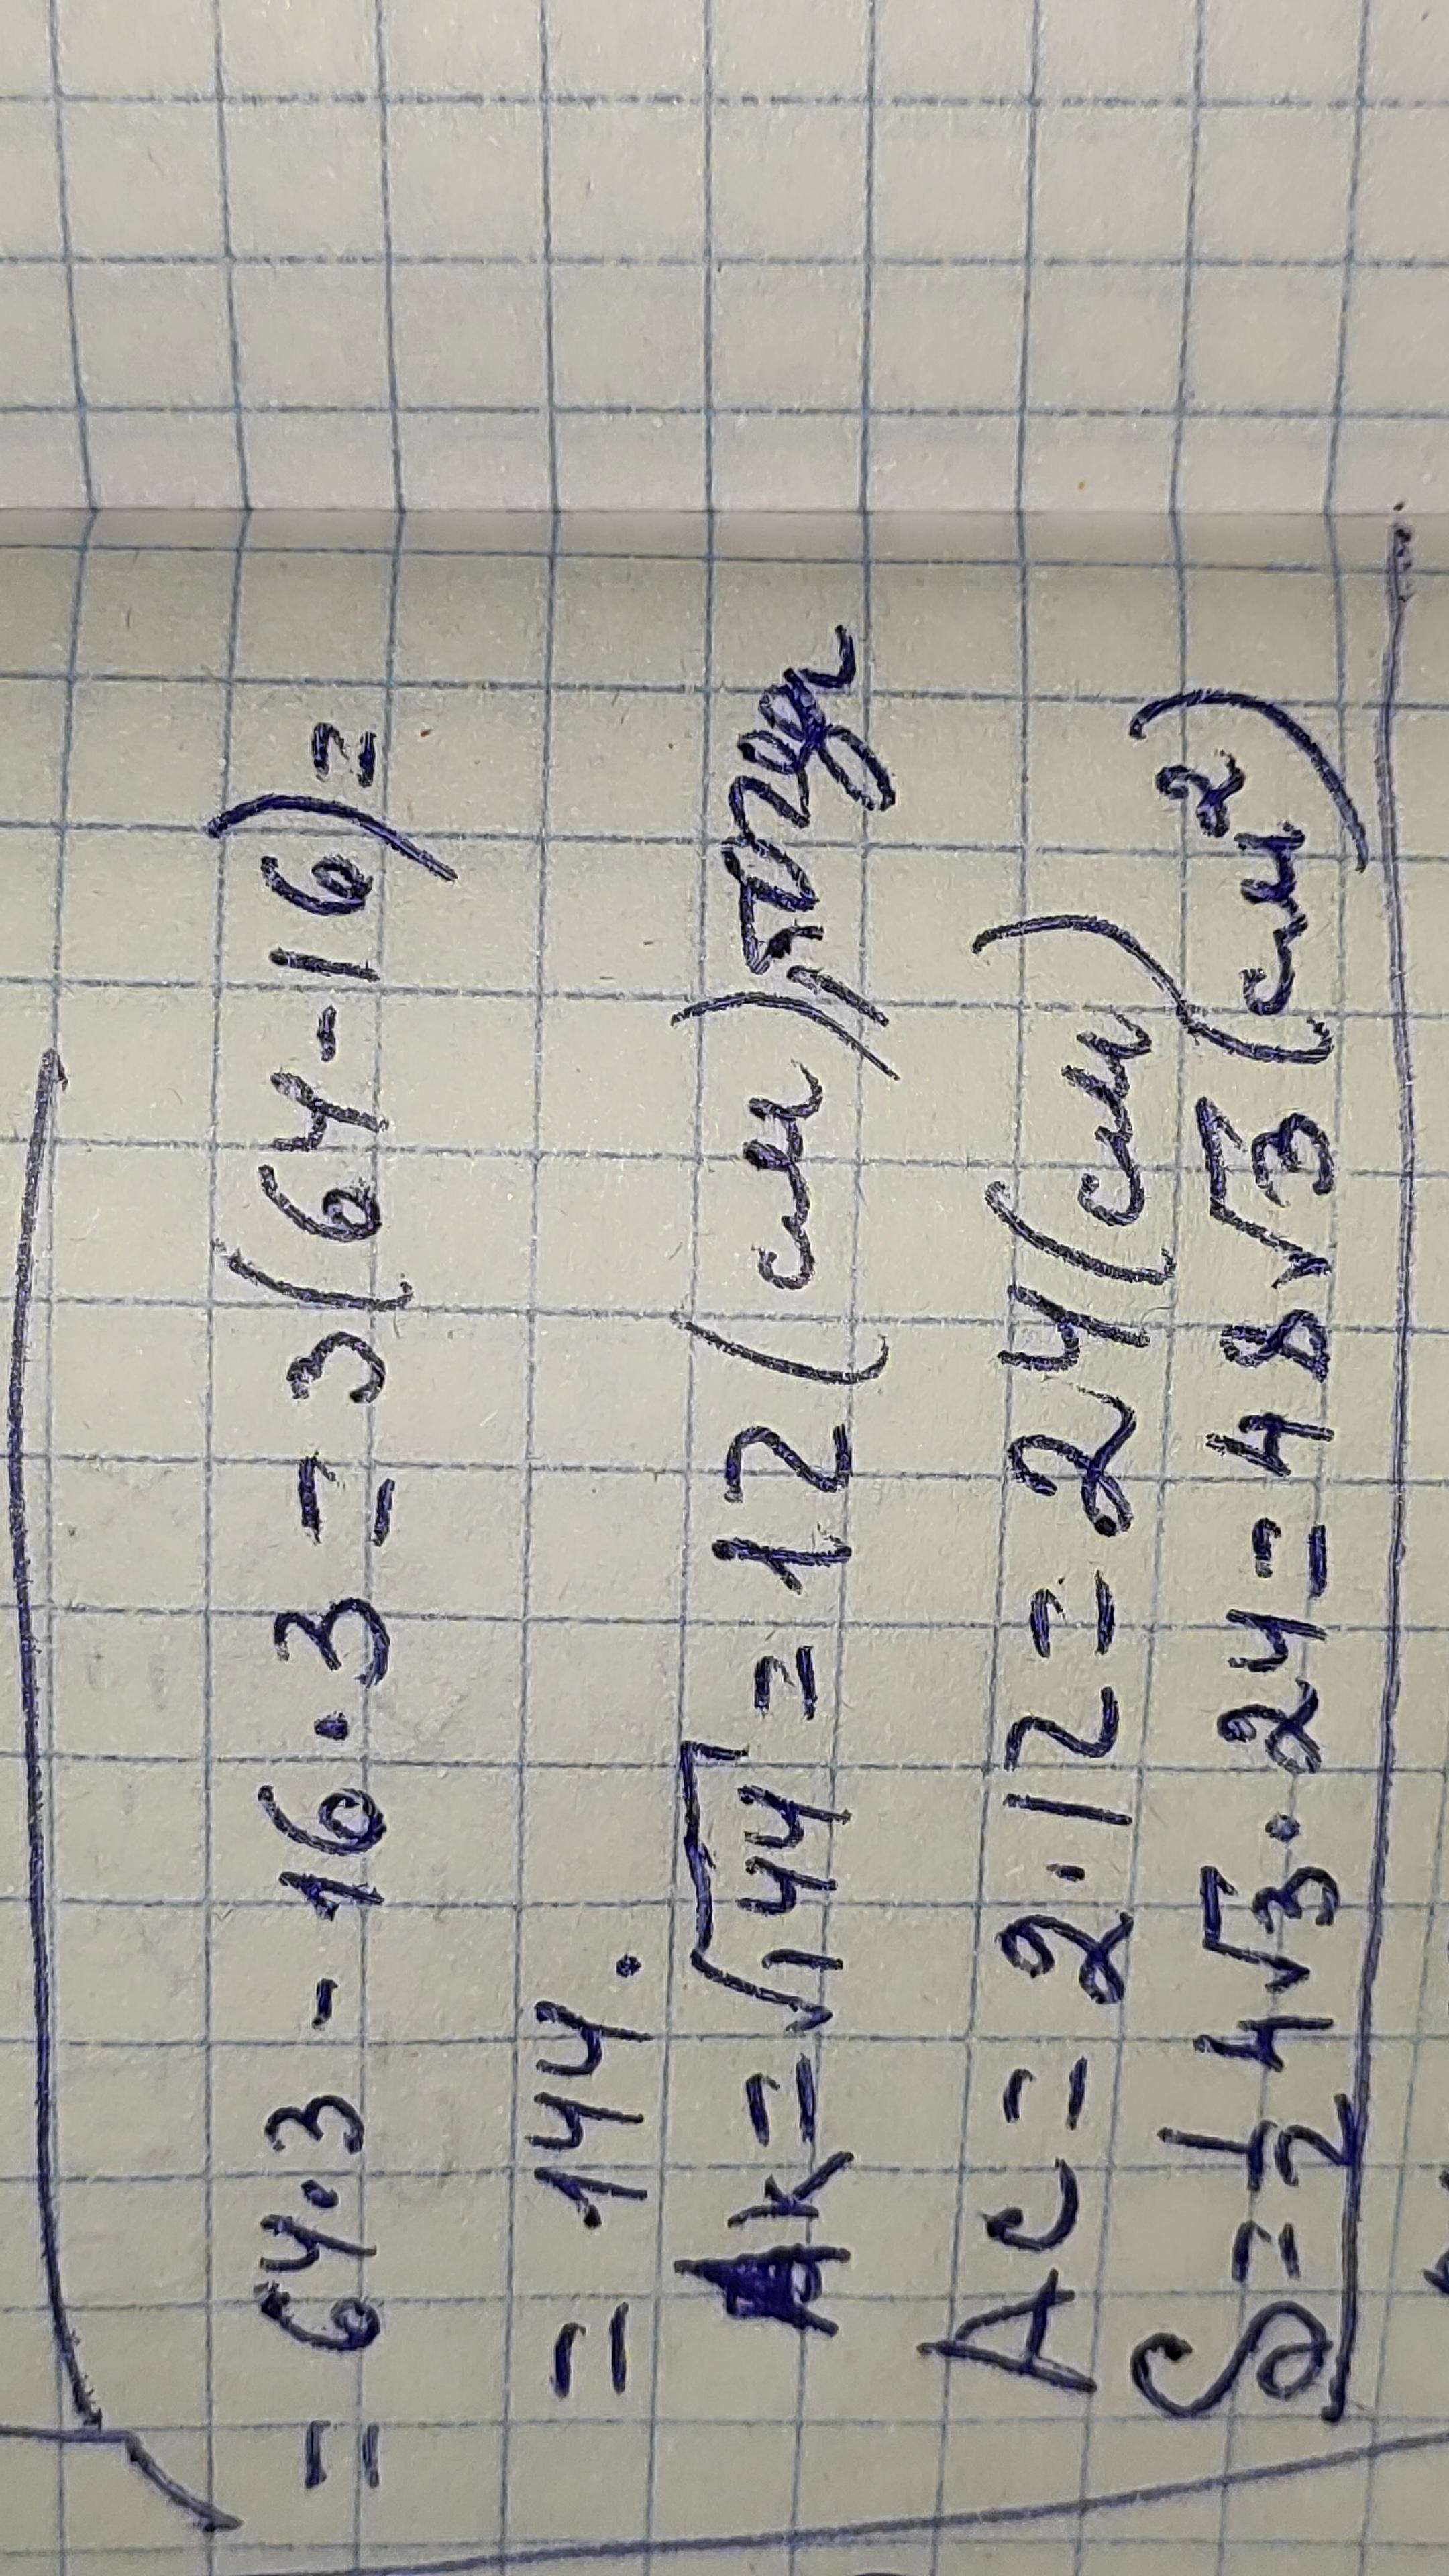 = 64·3 - 16·3 = 3(64-16) =
= 144.
AK = √144 = 12 (см), тогда
AC = 2·12 = 24 (см)
S = 1/2 4√3 · 24 = 48√3 (см²)